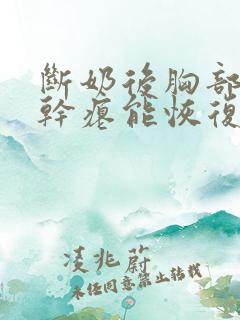 斷奶後胸部
幹瘪能恢復
凌兆蔚
未任同意禁止转载